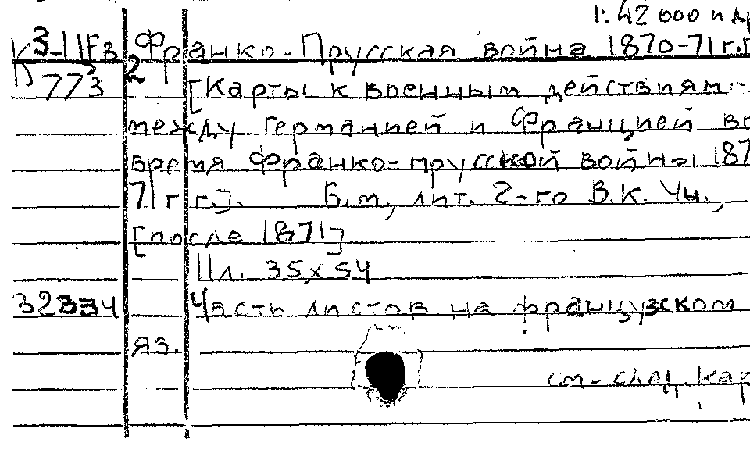 1:42 000 и др
К 3-IIFв Франко-Прусская война 1870-71 г.г.
773 2 [Карты к военным действиям
между Германией и Францией во
время Франко-прусской войны 187
71 г г.]. Б.м, лит. 2-го В.К. Уч.,
[после 1871]
11 л. 35х54
32334 Часть листов на французском
яз.
см. след. кар